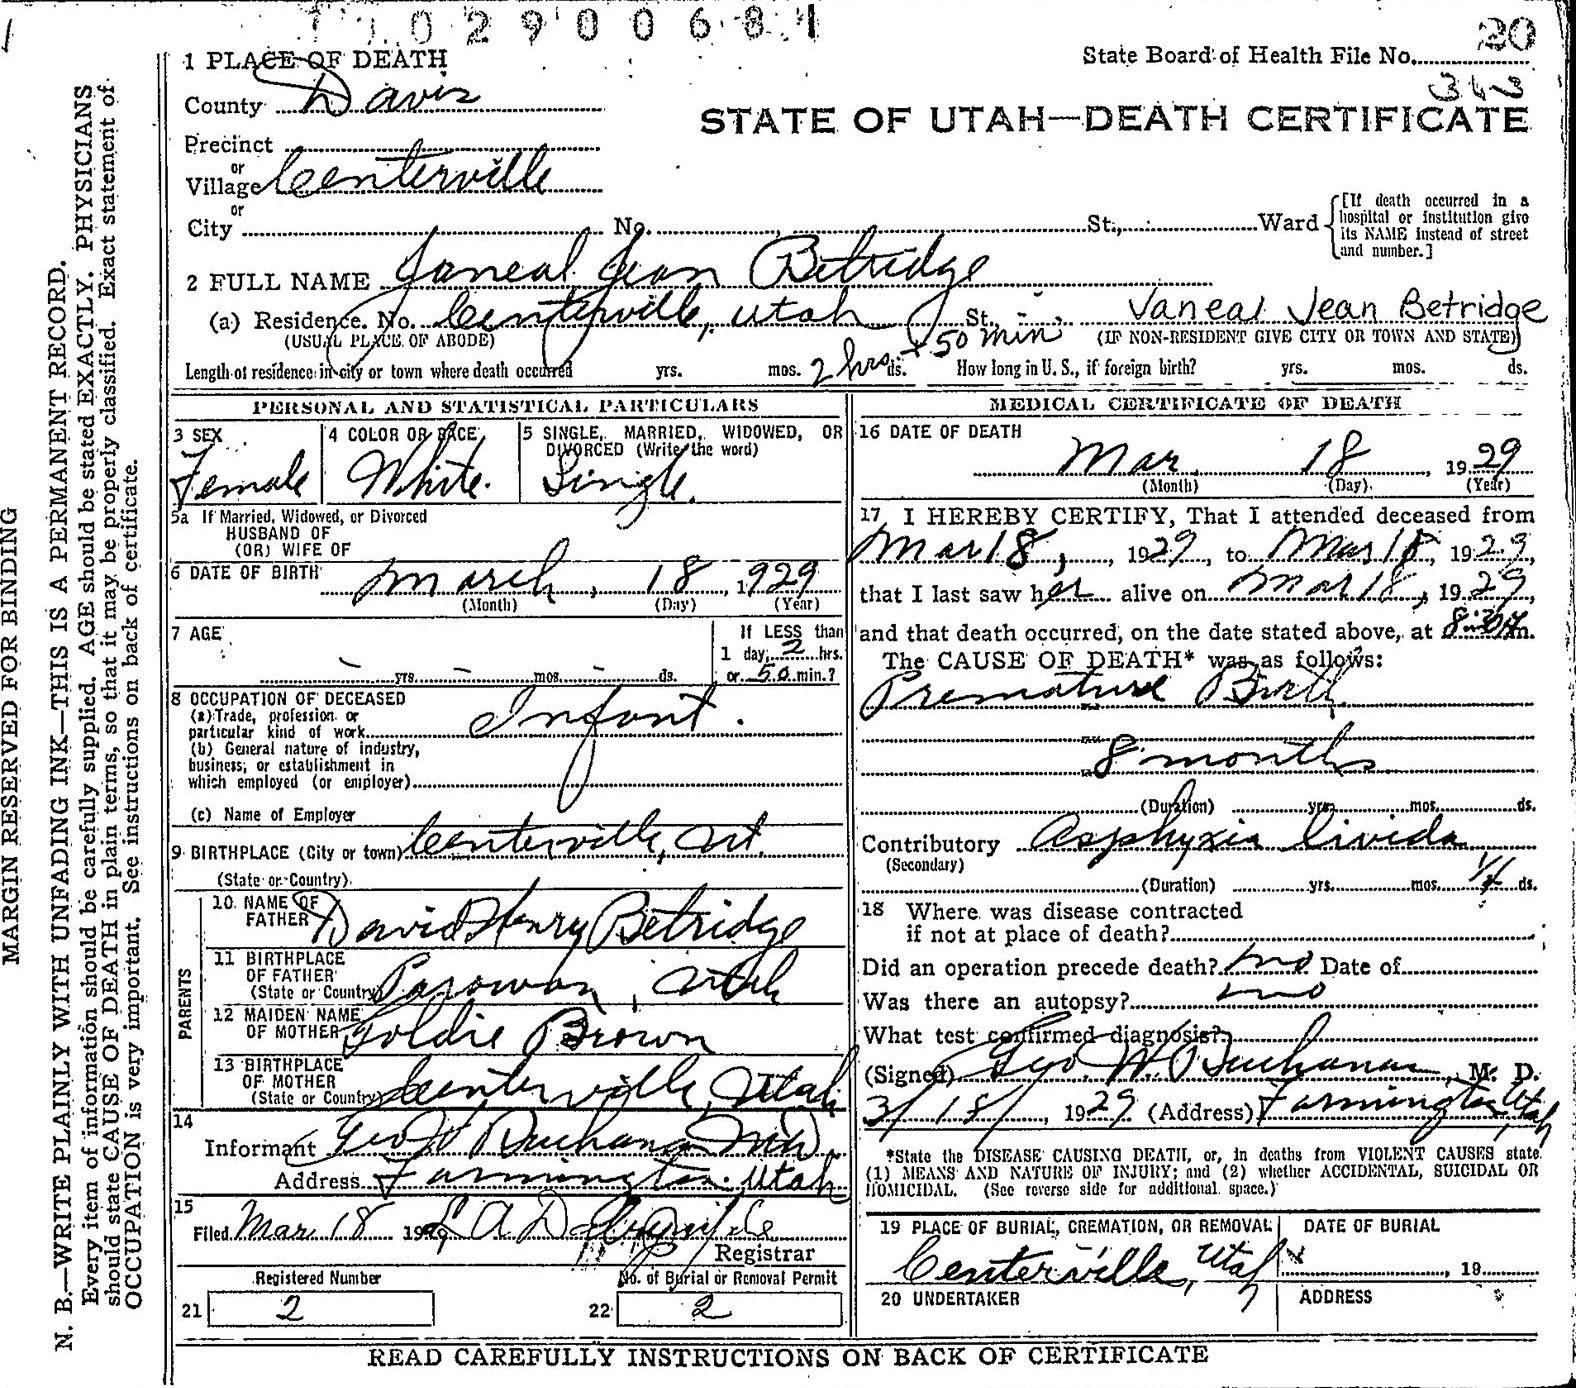 1 1 0 2 9 0 0 6 8 1
20
1 PLACE OF DEATH
State Board of Health File No.
343
County Davis
STATE OF UTAH—DEATH CERTIFICATE
Precinct
or
Village Centerville
or
City No. St., Ward
[If death occurred in a hospital or institution give its NAME instead of street and number.]
2 FULL NAME Janeal Jean Betridge
(a) Residence. No. Centerville, Utah St. Vaneal Jean Betridge
(USUAL PLACE OF ABODE) (IF NON-RESIDENT GIVE CITY OR TOWN AND STATE)
Length of residence in city or town where death occurred yrs. mos. 2 hrs. ds. + 50 min How long in U. S., if foreign birth? yrs. mos. ds.
PERSONAL AND STATISTICAL PARTICULARS
3 SEX
Female
4 COLOR OR RACE
White.
5 SINGLE, MARRIED, WIDOWED, OR DIVORCED (Write the word)
Single.
5a If Married, Widowed, or Divorced
HUSBAND OF
(OR) WIFE OF
6 DATE OF BIRTH March, 18, 1929
(Month) (Day) (Year)
7 AGE
yrs. mos. ds.
If LESS than
1 day, 2 hrs.
or 50 min.?
8 OCCUPATION OF DECEASED
(a) Trade, profession or
particular kind of work Infant.
(b) General nature of industry,
business, or establishment in
which employed (or employer)
(c) Name of Employer
9 BIRTHPLACE (City or town) Centerville, Ut.
(State or Country)
PARENTS
10 NAME OF
FATHER David Henry Betridge
11 BIRTHPLACE
OF FATHER
(State or Country) Parowan, Utah
12 MAIDEN NAME
OF MOTHER Goldie Brown
13 BIRTHPLACE
OF MOTHER
(State or Country) Centerville, Utah
14
Informant Geo W Buchanan MD
Address Farmington, Utah
15
Filed Mar 18 1929 L A D
Registrar
Registered Number
21 2
No. of Burial or Removal Permit
22 2
MEDICAL CERTIFICATE OF DEATH
16 DATE OF DEATH
Mar 18, 1929
(Month) (Day) (Year)
17 I HEREBY CERTIFY, That I attended deceased from
Mar 18, 1929, to Mar 18, 1929,
that I last saw her alive on Mar 18, 1929,
and that death occurred, on the date stated above, at m.
The CAUSE OF DEATH* was as follows:
Premature Birth
8 months
(Duration) yrs. mos. ds.
Contributory Asphyxia livida
(Secondary)
(Duration) yrs. mos. ds.
18 Where was disease contracted
if not at place of death?
Did an operation precede death? no Date of
Was there an autopsy? no
What test confirmed diagnosis?
(Signed) Geo. W. Buchanan, M. D.
3/18/, 1929 (Address) Farmington, Utah
*State the DISEASE CAUSING DEATH, or, in deaths from VIOLENT CAUSES state
(1) MEANS AND NATURE OF INJURY; and (2) whether ACCIDENTAL, SUICIDAL OR
HOMICIDAL. (See reverse side for additional space.)
19 PLACE OF BURIAL, CREMATION, OR REMOVAL
Centerville, Utah
DATE OF BURIAL
, 19
20 UNDERTAKER
ADDRESS
READ CAREFULLY INSTRUCTIONS ON BACK OF CERTIFICATE
MARGIN RESERVED FOR BINDING
N. B.—WRITE PLAINLY WITH UNFADING INK—THIS IS A PERMANENT RECORD.
Every item of information should be carefully supplied. AGE should be stated EXACTLY. PHYSICIANS
should state CAUSE OF DEATH in plain terms, so that it may be properly classified. Exact statement of
OCCUPATION is very important. See instructions on back of certificate.